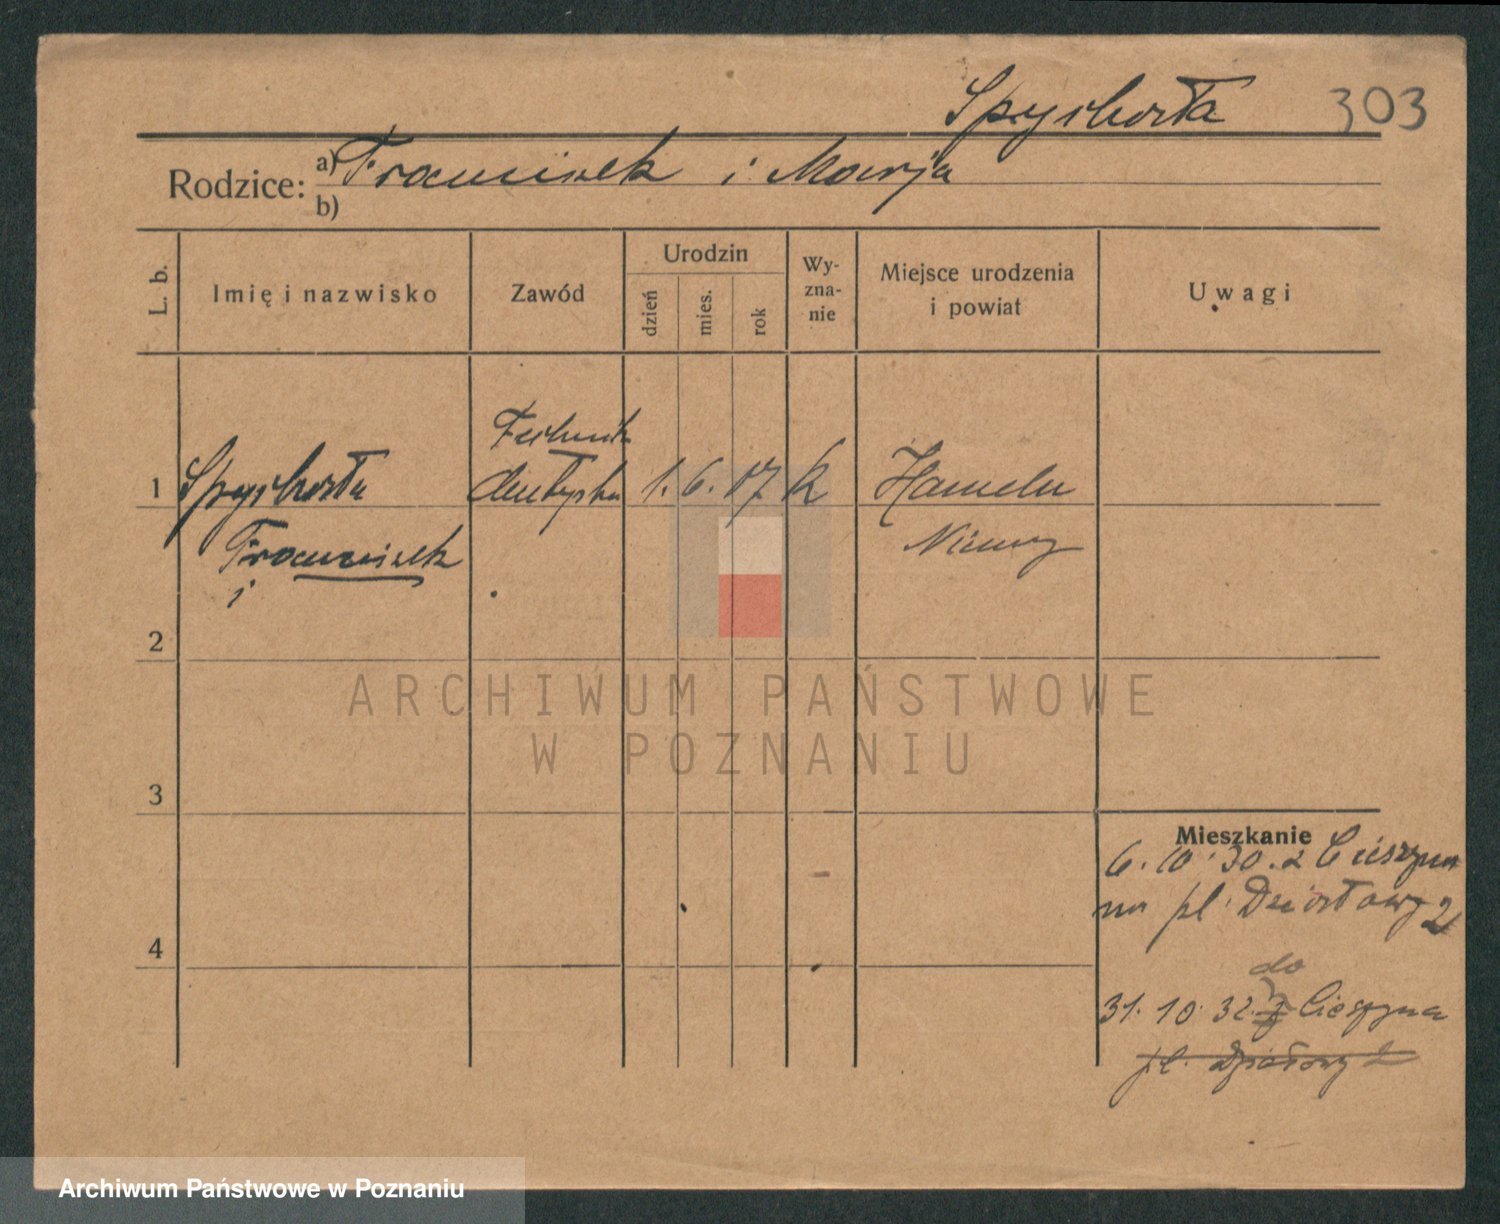 Spychała 303
Rodzice: a) Franciszek i Marja
b)
L. b. Imię i nazwisko Zawód Urodzin dzień mies. rok Wy-zna-nie Miejsce urodzenia i powiat Uwagi
Technik
1 Spychała dentysta 1. 6. 17 k Hameln
Franciszek Niemcy
i
2
ARCHIWUM PAŃSTWOWE
W POZNANIU
3
Mieszkanie
6. 10. 30. z Cieszyna
na pl. Działowy 2
4
do
31. 10. 32. z Cieszyna
pl. Działowy 2
Archiwum Państwowe w Poznaniu